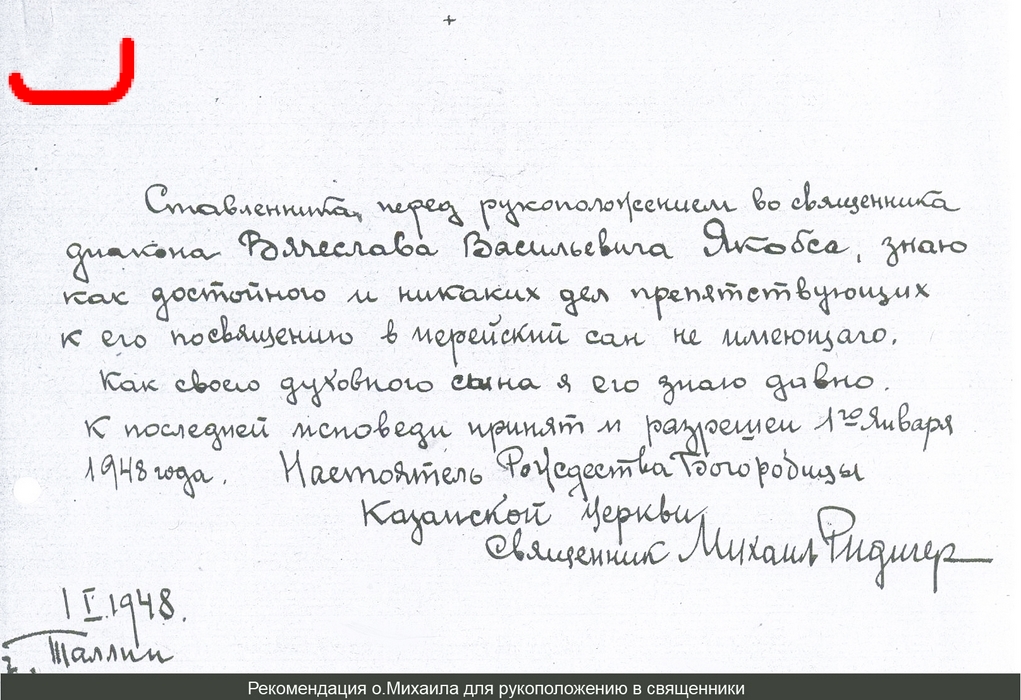 +
Ставленника, перед рукоположением во священника
диакона Вячеслава Васильевича Якобса, знаю
как достойного и никаких дел препятствующих
к его посвящению в иерейский сан не имеющаго.
Как своего духовного сына я его знаю давно.
К последней исповеди принят и разрешен 1го Января
1948 года. Настоятель Рождества Богородицы
Казанской Церкви,
Священник Михаил Ридигер
1 I.1948.
г. Таллин
Рекомендация о.Михаила для рукоположению в священники